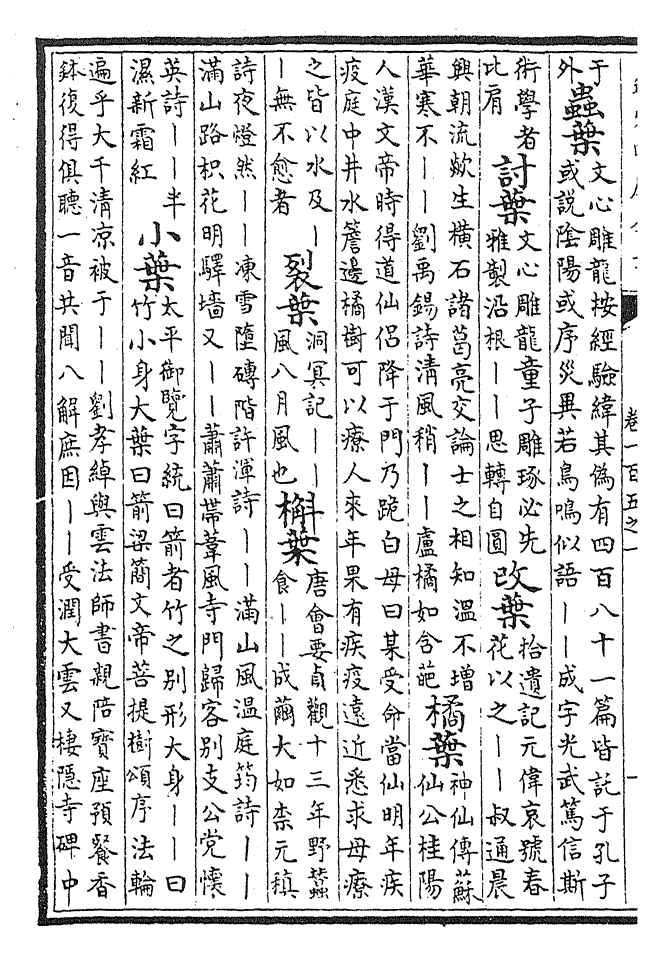 卷一百五之一
一
于
外
蟲葉
文心雕龍按經驗緯其偽有四百八十一篇皆託于孔子
或說陰陽或序災異若鳥鳴似語——成字光武篤信斯
術學者
比肩
討葉
文心雕龍童子雕琢必先
雅製沿根——思轉自圓
改葉
拾遺記元偉哀號春
花以之——叔通晨
興朝流歎生橫石諸葛亮交論士之相知溫不增
華寒不——劉禹錫詩清風稍——盧橘如含葩
橘葉
神仙傳蘇
仙公桂陽
人漢文帝時得道仙侶降于門乃跪白母曰某受命當仙明年疾
疫庭中井水簷邊橘樹可以療人來年果有疾疫遠近悉求母療
之皆以水及—
—無不愈者
裂葉
洞冥記——
風八月風也
槲葉
唐會要貞觀十三年野蠶
食——成繭大如柰元稹
詩夜燈然——凍雪墮磚階許渾詩——滿山風溫庭筠詩——
滿山路枳花明驛墻又——蕭蕭帶葦風寺門歸客別支公党懷
英詩——半
濕新霜紅
小葉
太平御覽字統曰箭者竹之別形大身——曰
竹小身大葉曰箭梁簡文帝菩提樹頌序法輪
遍乎大千清凉被于——劉孝綽與雲法師書親陪寶座預餐香
鉢復得俱聽一音共聞八解庶因——受潤大雲又棲隱寺碑中